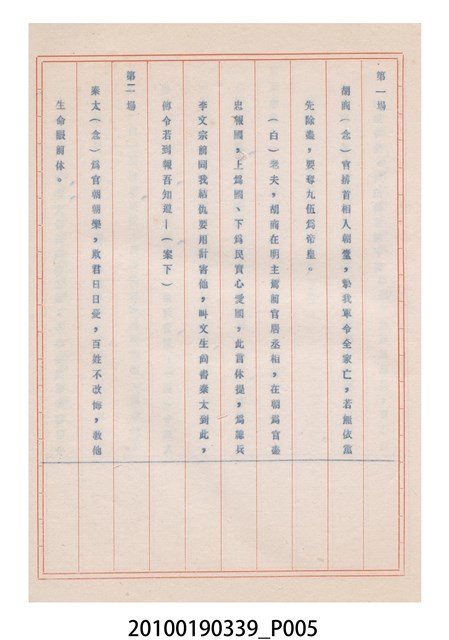 第一場
胡商(念)官拼首相人朝堂,掌我軍令全家亡,若無依黨
先除盡,要奪九伍為帝皇。
(白)老夫,胡商在明主駕前官居丞相,在朝為官盡
忠報國,上為國、下為民實心愛國,此言休提,為鎮兵
李文宗前同我結仇要用計害他,叫文生尚書秦太到此,
傳令若到報吾知道—(案下)
第二場
秦太(念)為官朝朝樂,欺君日日受,百姓不改悔,教他
生命眼前休。
20100190339_P005